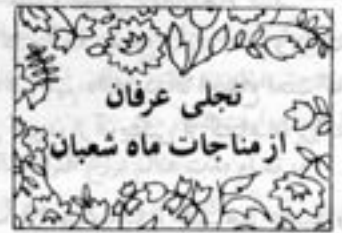 تجلی عرفان
از مناجات ماه شعبان